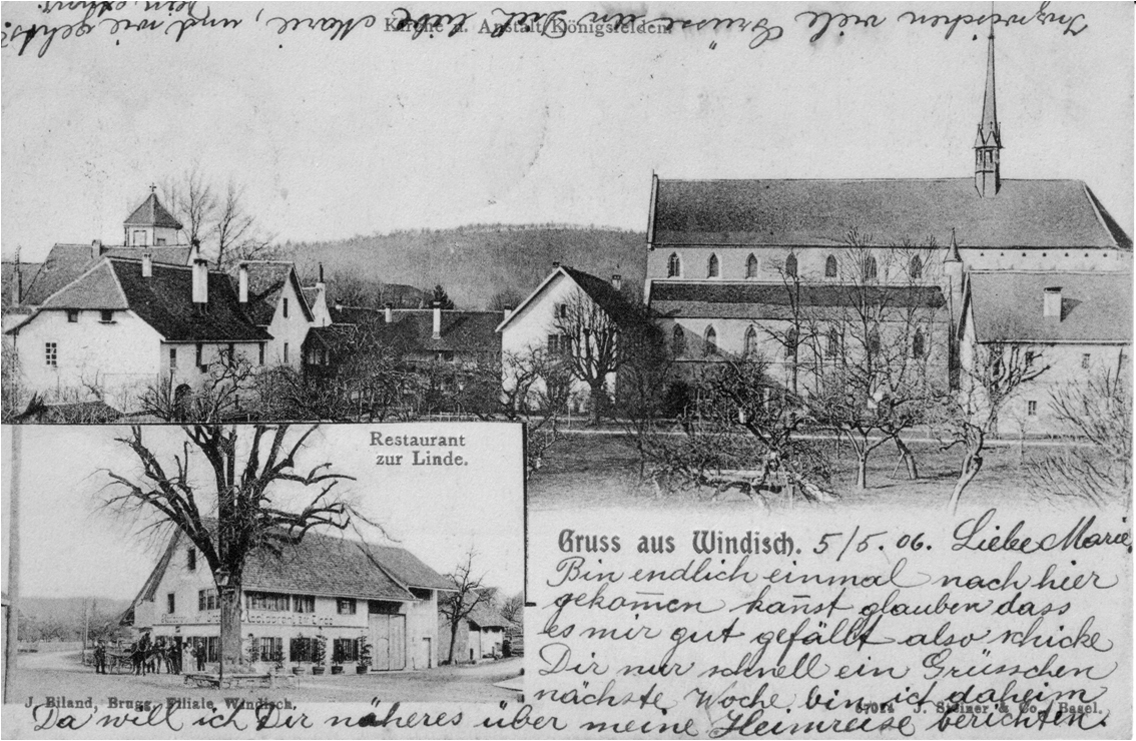 Kirche u. Anstalt Königsfelden.
Restaurant
zur Linde.
Gruss aus Windisch. 5/5. 06. Liebe Marie.
Bin endlich einmal nach hier
gekom̄en kan̄st glauben dass
es mir gut gefällt also schicke
Dir nur schnell ein Grüsschen
nächste Woche bin ich daheim
J. Biland, Brugg, Filiale Windisch.
J. Steiner & Co., Basel.
Da will ich Dir näheres über meine Heimreise berichten.
Inzwischen viele Grüsse an Dich liebe Marie, und wie gehts?